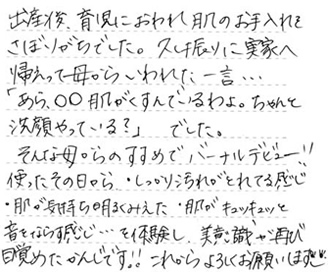 出産後、育児におわれ肌のお手入れを
さぼりがちでした。久し振りに実家へ
帰えって母からいわれた一言…
「あら、〇〇肌がくすんでいるわよ。ちゃんと
洗顔やっている?」でした。
そんな母からのすすめでバーナルデビュー!!
使ったその日から・しっかり汚れがとれてる感じ
・肌が気持ち明るくみえた・肌がキュッキュッと
音をならす感じ…を体験し、美意識が再び
目覚めたかんじです!!これからよろしくお願いします